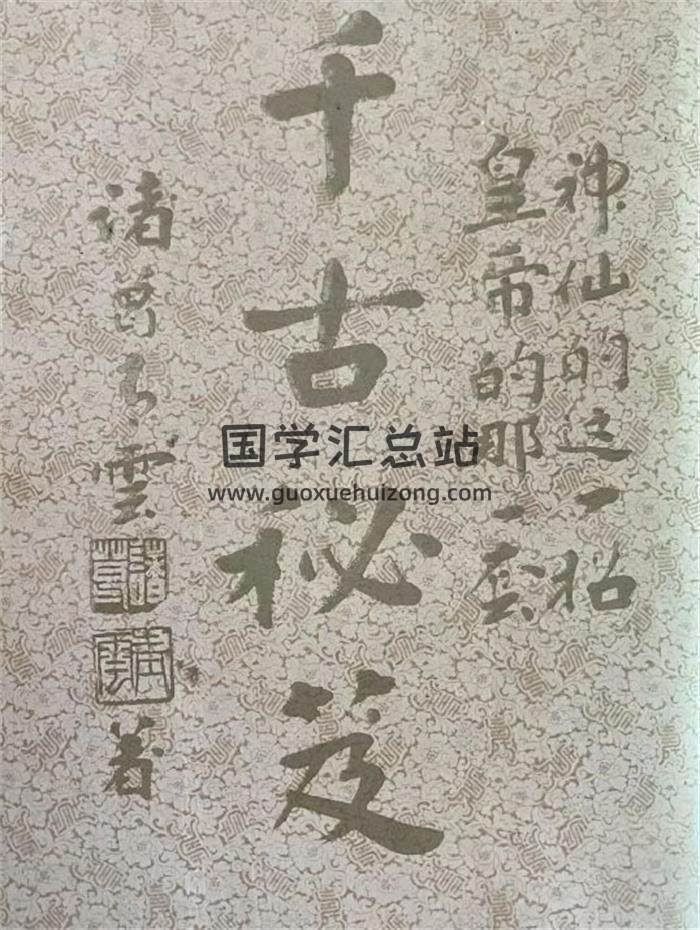 神仙的这一招
皇帝的那一套
千古秘笈
诸葛青雲
諸葛
青雲
著
国学汇总站
www.guoxuehuizong.com